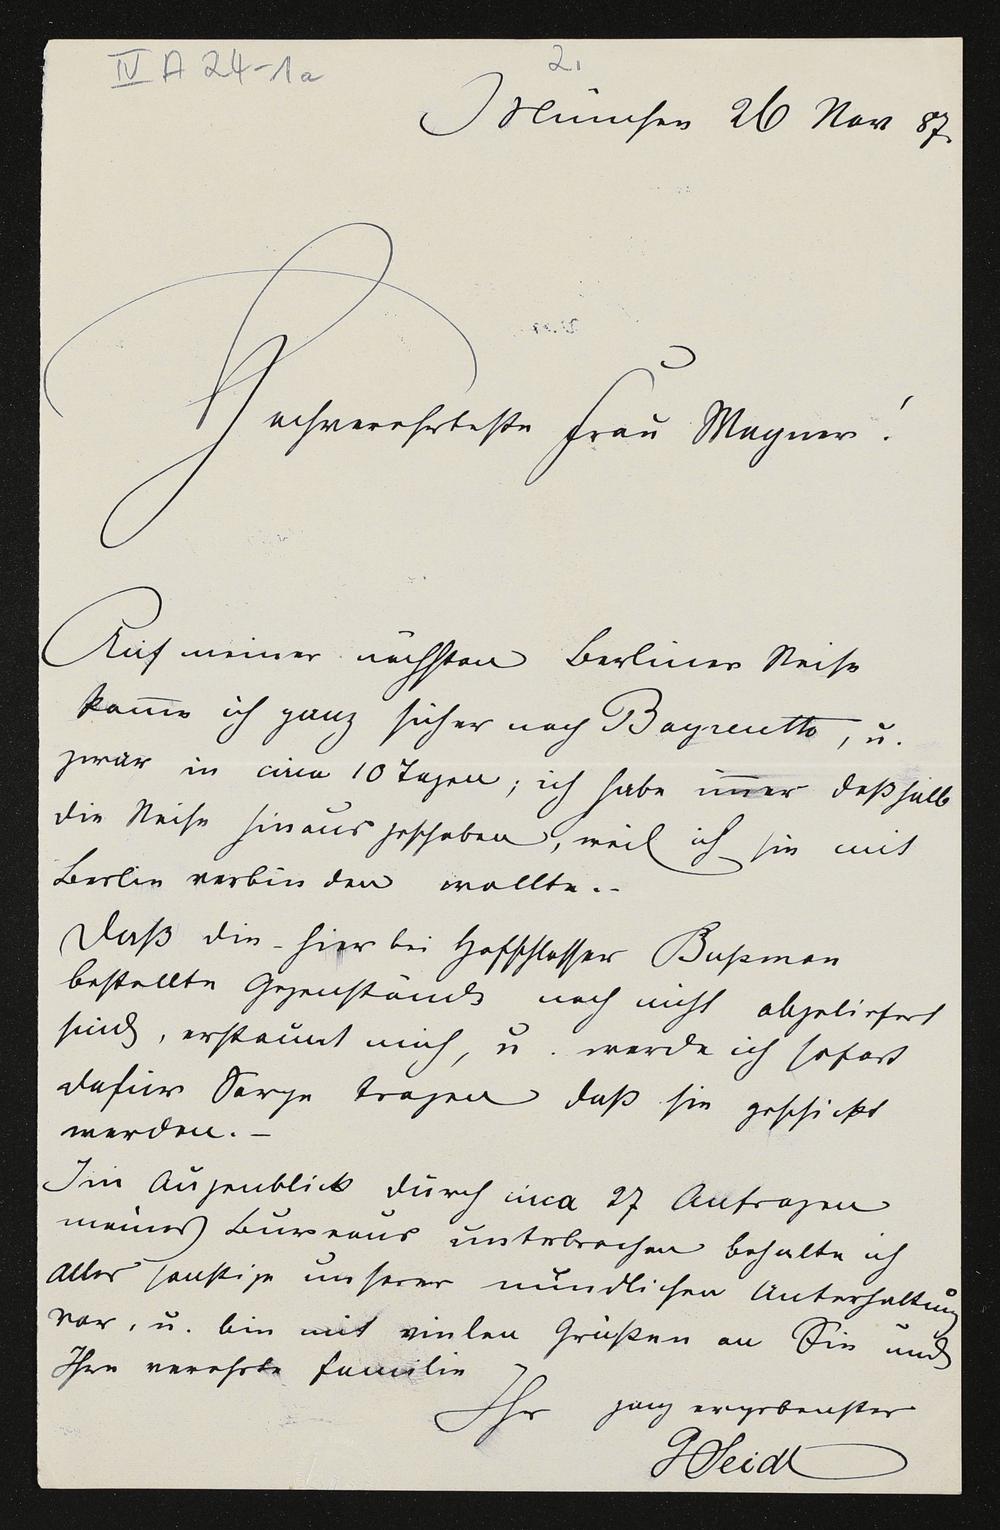 IV A 24-1a
2.
München 26 Nov 87.
Hochverehrteste Frau Wagner!
Auf meiner nächsten Berliner Reise
kom̅e ich ganz sicher nach Bayreuth, u.
zwar in circa 10 Tagen; ich habe im̅er deßhalb
die Reise hinausgeschoben, weil ich sie mit
Berlin verbinden wollte.-
Daß die - hier bei Hofschlosser Bußman
bestellte Gegenstände noch nicht abgeliefert
sind, erstaunt mich, u. werde ich sofort
dafür Sorge tragen daß sie geschickt
werden. -
Im Augenblick durch circa 27 Anfragen
meines Bureaus unterbrochen behalte ich
alles sonstige unserer mündlichen Unterhaltung
vor, u. bin mit vielen Grüßen an Sie und
Ihre verehrte Familie
Ihr ganz ergebenster
GSeidl